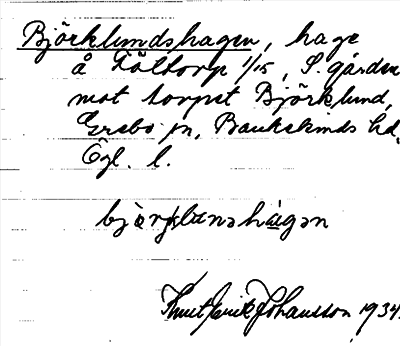 Björklundshagen, hage
å Fältorp 1/15, S. gården
mot torpet Björklund,
Grebo sn, Bankekinds hd,
Ögl. l.
bjò̀rklunshàgən
Knut Erik Johansson 1934.